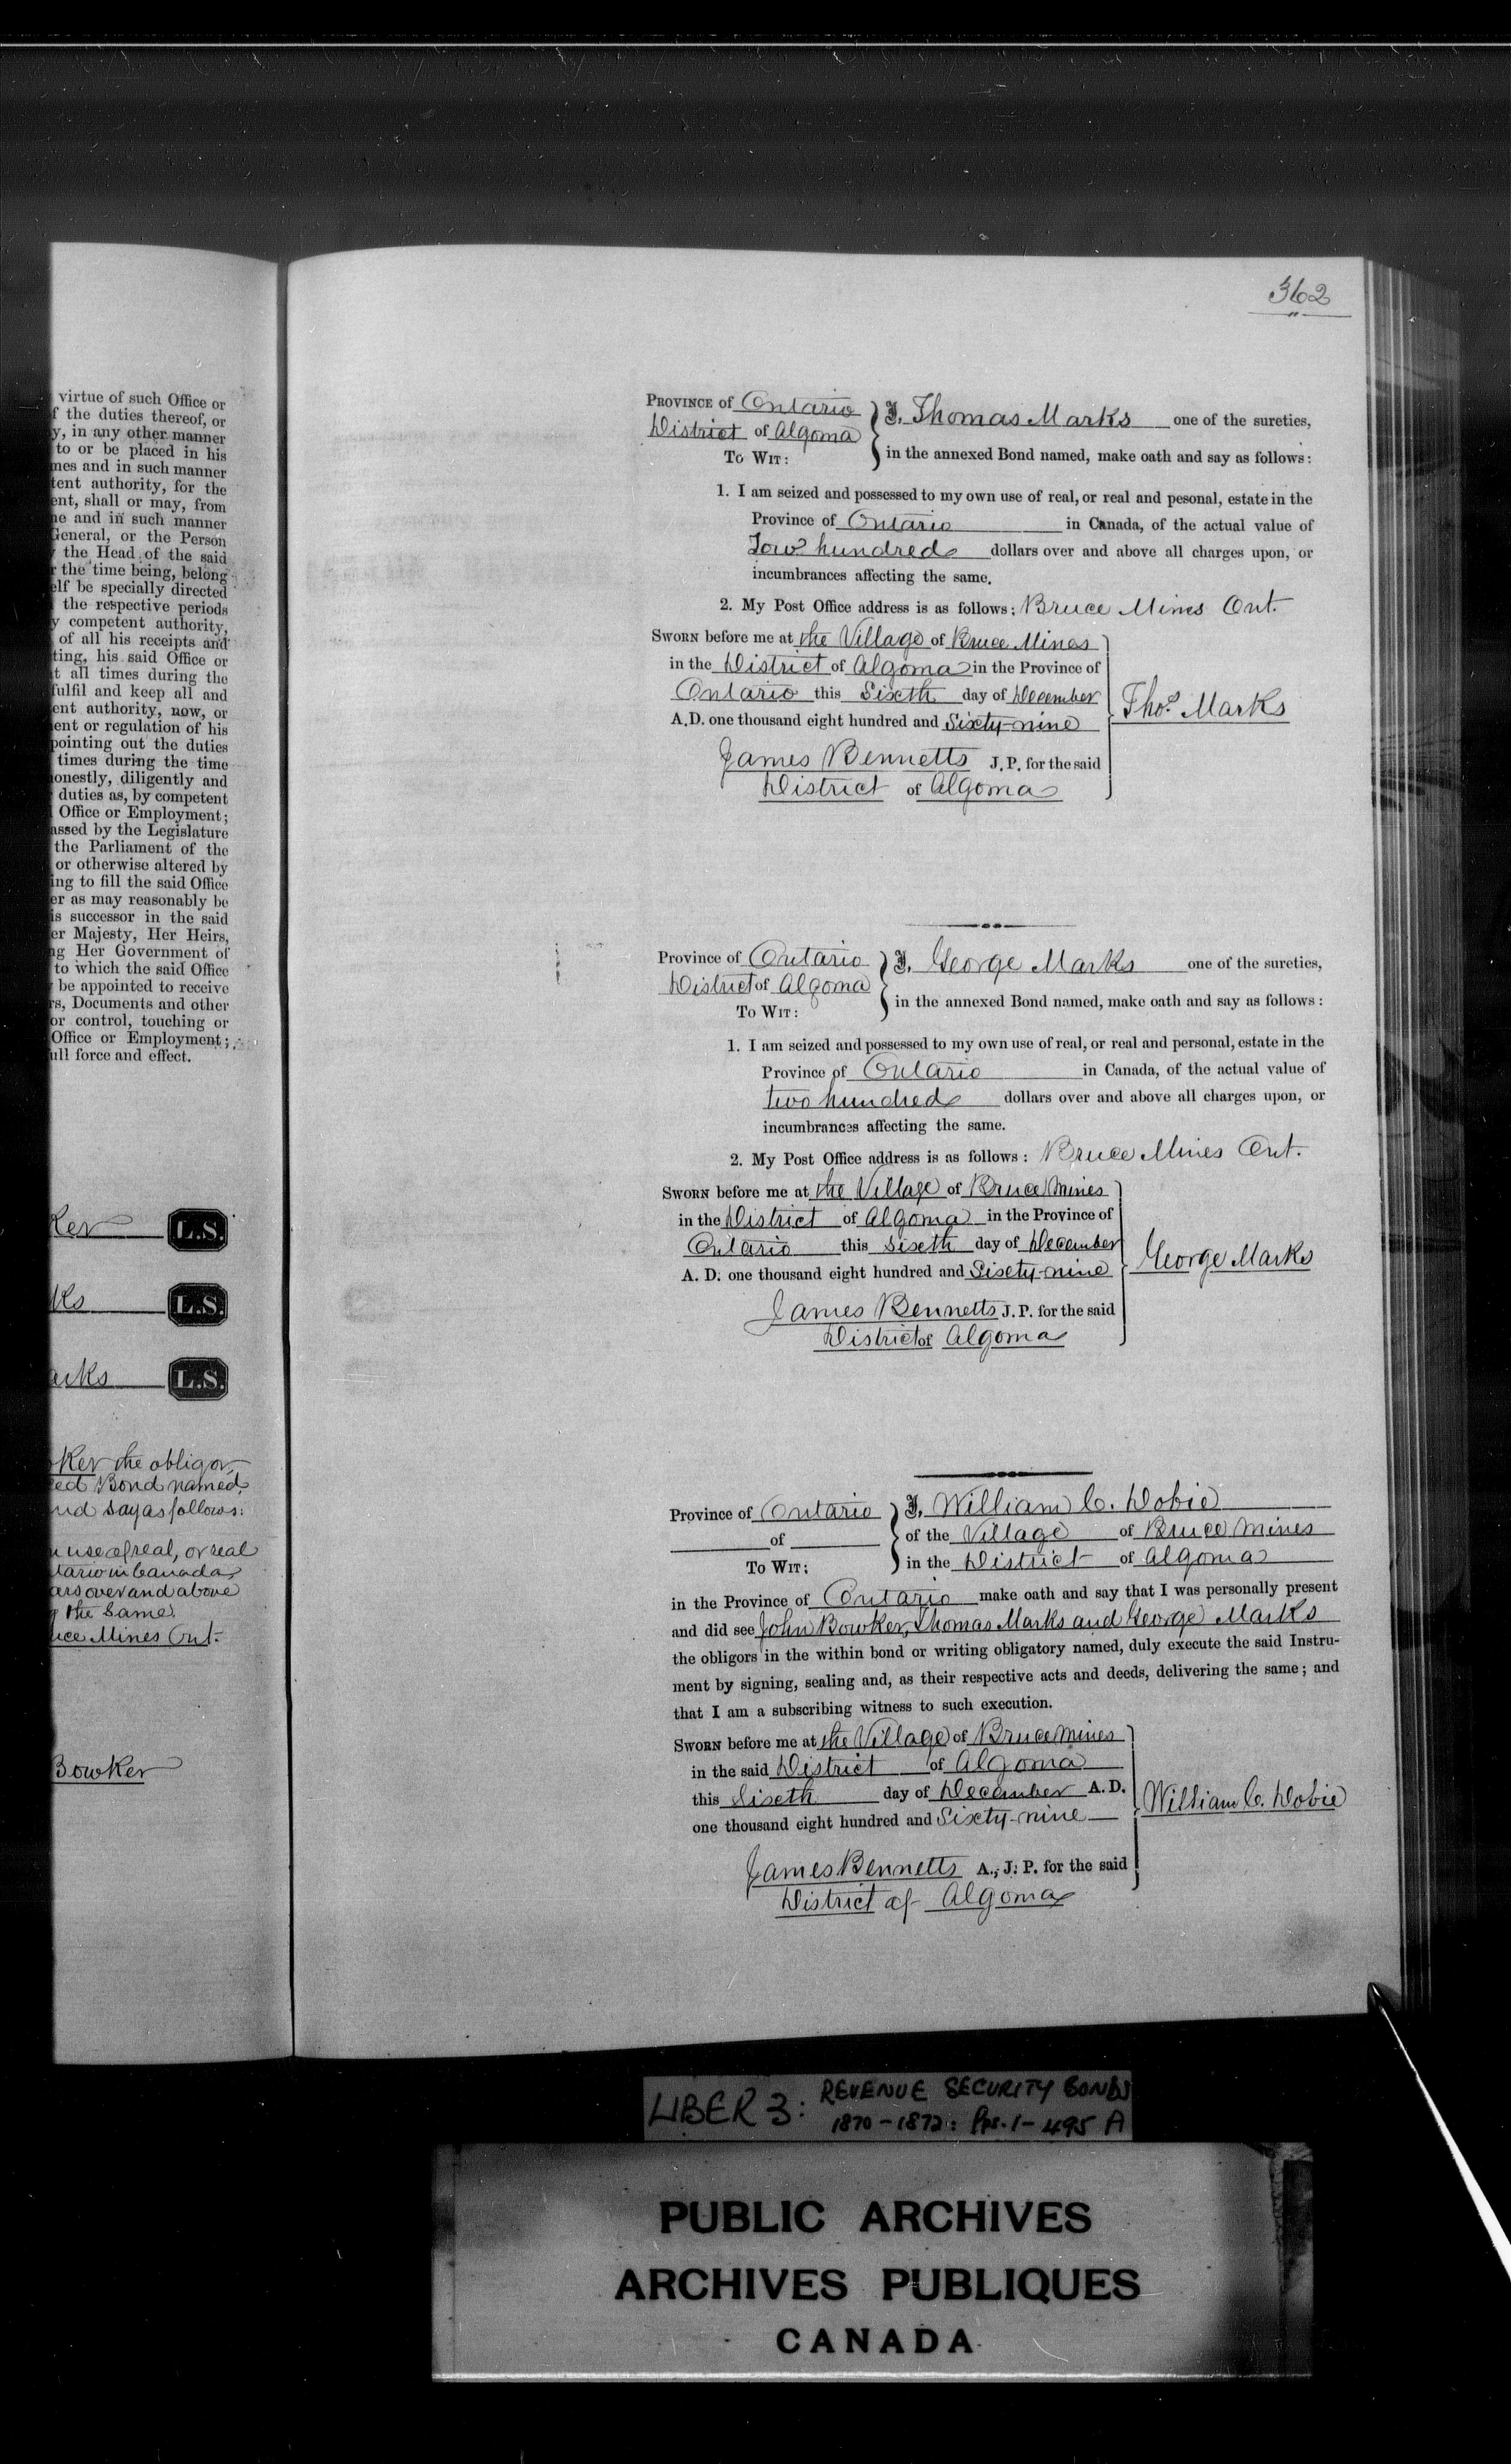 virtue of such Office or
f the duties thereof, or
y, in any other manner
to or be placed in his
nes and in such manner
tent authority, for the
ent, shall or may, from
ne and in such manner
General, or the Person
the Head of the said
r the time being, belong
elf be specially directed
the respective periods
y competent authority,
of all his receipts and
ting, his said Office or
t all times during the
fulfil and keep all and
ent authority, now, or
ent or regulation of his
pointing out the duties
times during the time
onestly, diligently and
duties as, by competent
Office or Employment;
assed by the Legislature
the Parliament of the
or otherwise altered by
ing to fill the said Office
er as may reasonably be
is successor in the said
er Majesty, Her Heirs,
ng Her Government of
to which the said Office
be appointed to receive
rs, Documents and other
or control, touching or
Office or Employment;
ull force and effect.
ker L.S.
ks L.S.
arks L.S.
ker the obligor
ed Bond named
nd say as follows:
n use of real, or real
tario in Canada,
ars over and above
g the same.
uce Mines Ont.
Bowker
362
PROVINCE of Ontario
District of Algoma
TO WIT:
I, Thomas Marks one of the sureties,
in the annexed Bond named, make oath and say as follows:
1. I am seized and possessed to my own use of real, or real and pesonal, estate in the
Province of Ontario in Canada, of the actual value of
Tow hundred dollars over and above all charges upon, or
incumbrances affecting the same.
2. My Post Office address is as follows: Bruce Mines Ont.
SWORN before me at the Village of Bruce Mines
in the District of Algoma in the Province of
Ontario this Sixth day of December
A.D. one thousand eight hundred and Sixty-nine
Thos. Marks
James Bennetts J.P. for the said
District of Algoma
Province of Ontario
District of Algoma
TO WIT:
I, George Marks one of the sureties,
in the annexed Bond named, make oath and say as follows:
1. I am seized and possessed to my own use of real, or real and personal, estate in the
Province of Ontario in Canada, of the actual value of
two hundred dollars over and above all charges upon, or
incumbrances affecting the same.
2. My Post Office address is as follows: Bruce Mines Ont.
SWORN before me at the Village of Bruce Mines
in the District of Algoma in the Province of
Ontario this Sixth day of December
A. D. one thousand eight hundred and Sixety-nine
George Marks
James Bennetts J. P. for the said
District of Algoma
Province of Ontario
of
TO WIT:
I, William C. Dobie
of the Village of Bruce Mines
in the District of Algoma
in the Province of Ontario make oath and say that I was personally present
and did see John Bowker, Thomas Marks and George Marks
the obligors in the within bond or writing obligatory named, duly execute the said Instru-
ment by signing, sealing and, as their respective acts and deeds, delivering the same; and
that I am a subscribing witness to such execution.
SWORN before me at the Village of Bruce Mines
in the said District of Algoma
this Sixth day of December A. D.
one thousand eight hundred and Sixty-nine
William C. Dobie
James Bennetts A., J. P. for the said
District of Algoma
LIBER 3: REVENUE SECURITY BONDS
1870-1872: Pps. 1-495 A
PUBLIC ARCHIVES
ARCHIVES PUBLIQUES
CANADA